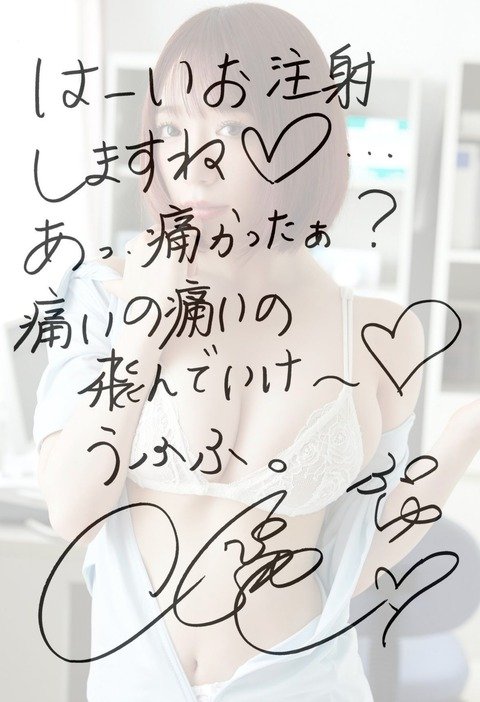 はーいお注射
しますね♡…
あっ、痛かったぁ？
痛いの痛いの
飛んでいけ～♡
うふふ。